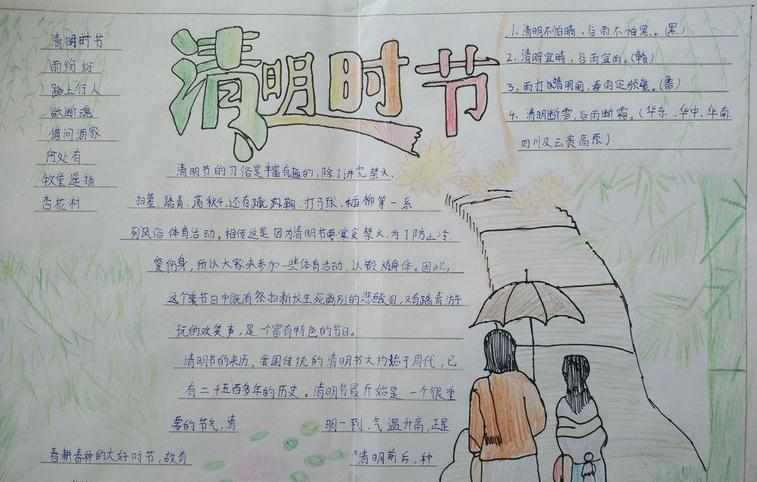 清明时节
清明时节
雨纷纷
路上行人
欲断魂
借问酒家
何处有
牧童遥指
杏花村
1. 清明不怕晴，谷雨不怕雨。(黑)
2. 清明宜晴，谷雨宜雨。(赣)
3. 雨打清明前，春雨定频繁。(鲁)
4. 清明断雪，谷雨断霜。(华东、华中、华南
四川及云贵高原)
清明节的习俗是丰富有趣的，除了讲究禁火、
扫墓，踏青、荡秋千、还有蹴鞠、打马球、插柳等一系
列风俗体育活动。相传这是因为清明节要寒食禁火，为了防止冷
餐伤身，所以大家来参加一些体育活动，以锻炼身体。因此，
这个节日中既有祭扫新坟生死离别的悲酸泪，又有踏青游
玩的欢笑声，是一个富有特色的节日。
清明节的来历，我国传统的清明节大约始于周代，已
有二千五百多年的历史。清明节最开始是一个很重
要的节气，清 明一到，气温升高，正是
春耕春种的大好时节，故有 "清明前后，种